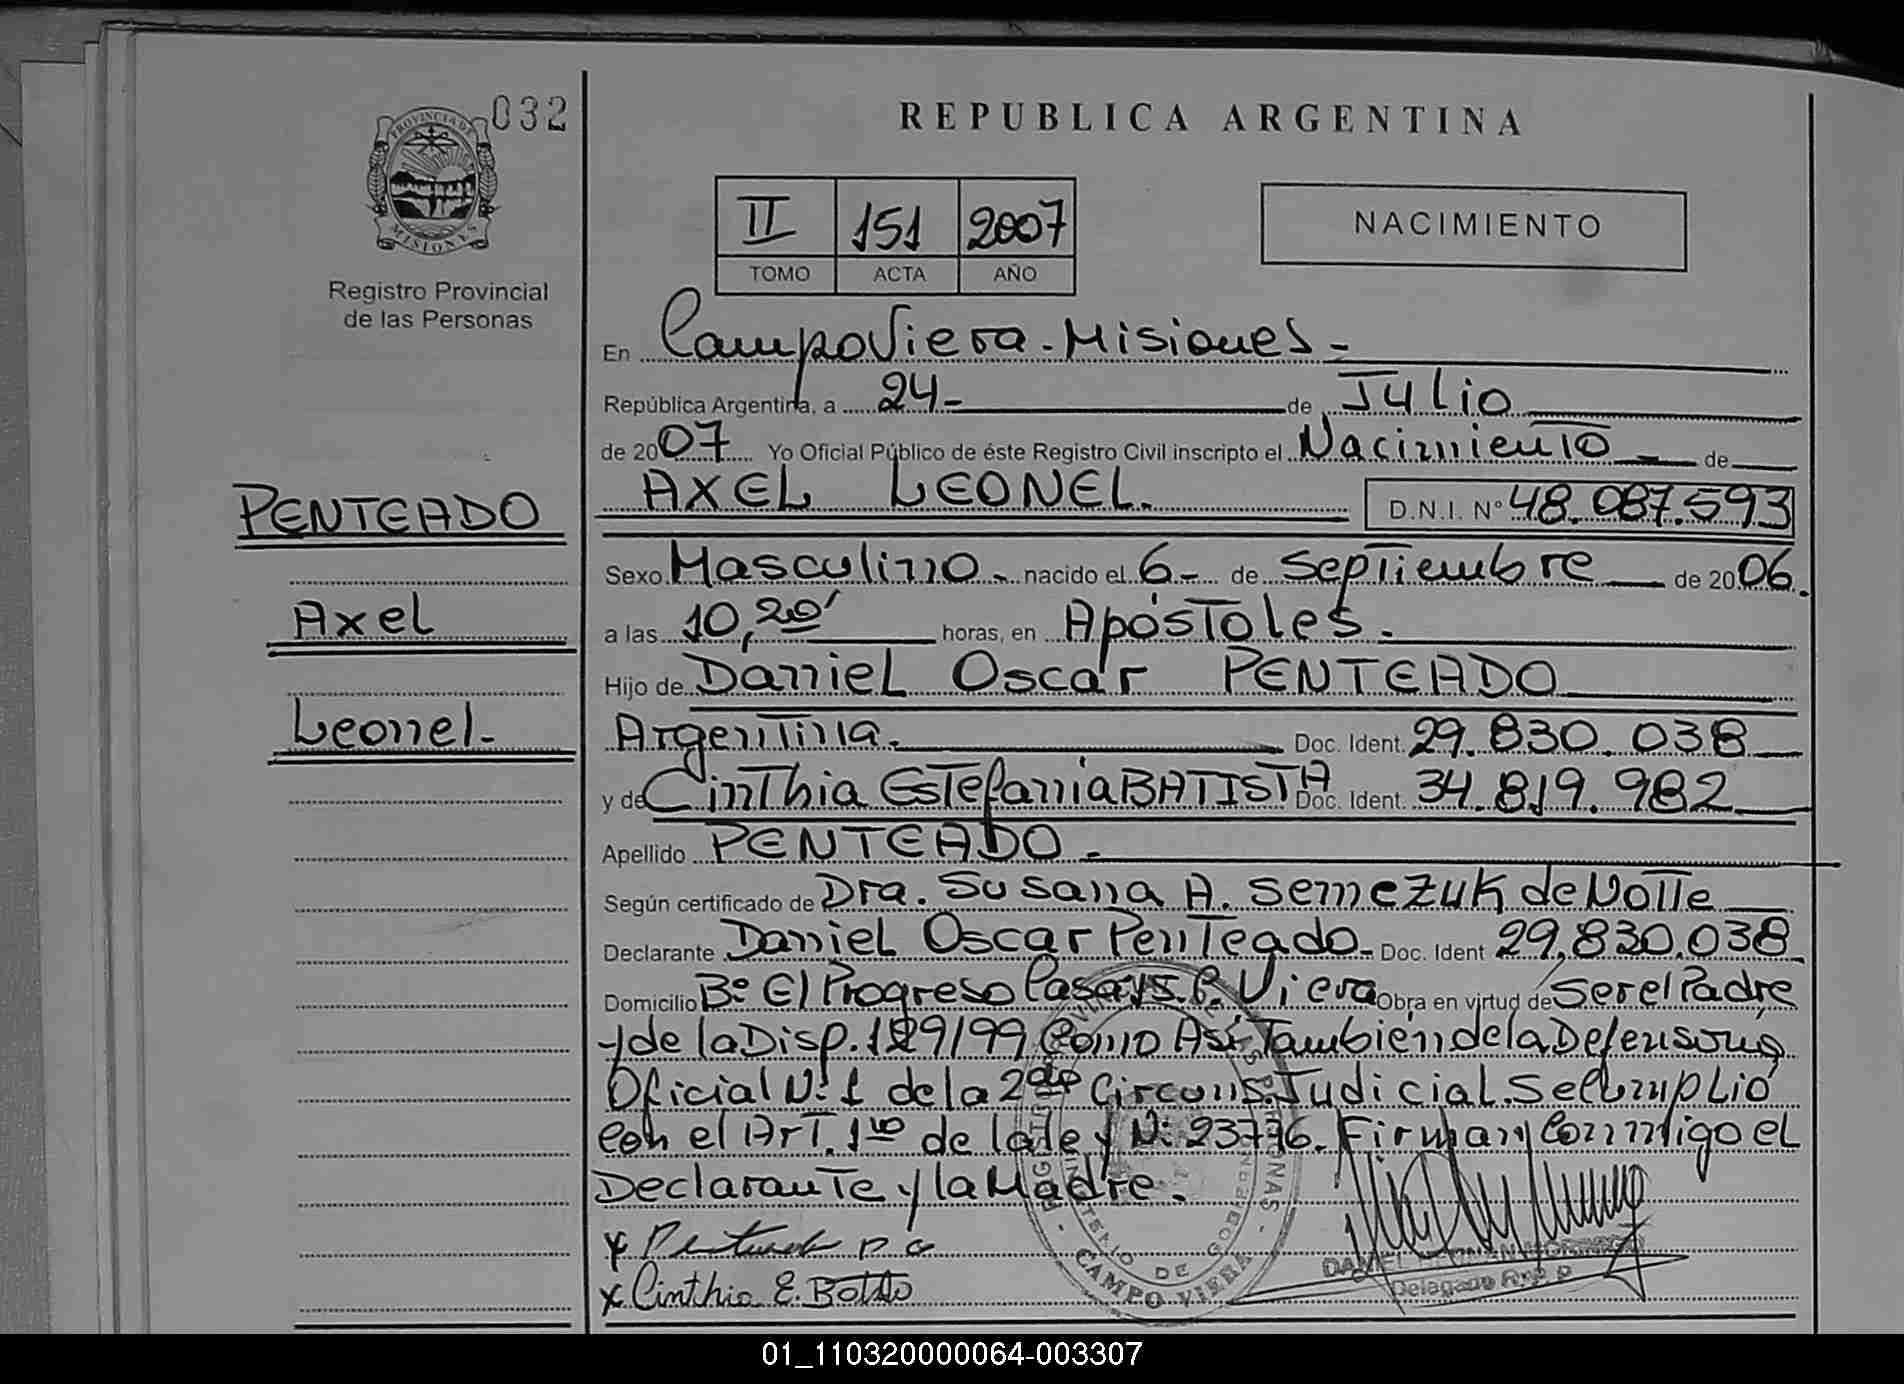 032
PROVINCIA DE
MISIONES
Registro Provincial
de las Personas
PENTEADO
Axel
Leonel.-
REPUBLICA ARGENTINA
II 151 2007
TOMO ACTA AÑO
NACIMIENTO
En Campo Viera - Misiones -
República Argentina, a 24- de Julio
de 2007 Yo Oficial Público de éste Registro Civil inscripto el Nacimiento - de
AXEL LEONEL. D.N.I. N° 48.087.593
Sexo Masculino - nacido el 6- de Septiembre de 2006.
a las 10,20' horas, en Apóstoles.
Hijo de Daniel Oscar PENTEADO
Argentina. Doc. Ident. 29.830.038
y de Cinthia Estefania BATISTA Doc. Ident. 34.819.982
Apellido PENTEADO -
Según certificado de Dra. Susana A. Semezuk de Notte
Declarante Daniel Oscar Penteado - Doc. Ident 29.830.038
Domicilio B° El Progreso Casa 15. C. Viera Obra en virtud de Ser el Padre
y de la Disp. 129/99 Como Así También de la Defensoría
Oficial N° 1 de la 2da Circuns. Judicial. Se Cumplió
con el Art. 1ro de la ley N° 23776. Firman Conmigo el
Declarante y la Madre.
x Penteado D O
x Cinthia E. Batista
REGISTRO PROVINCIAL DE LAS PERSONAS
MINISTERIO DE GOBIERNO
CAMPO VIERA
DANIEL
Delegado
01_110320000064-003307